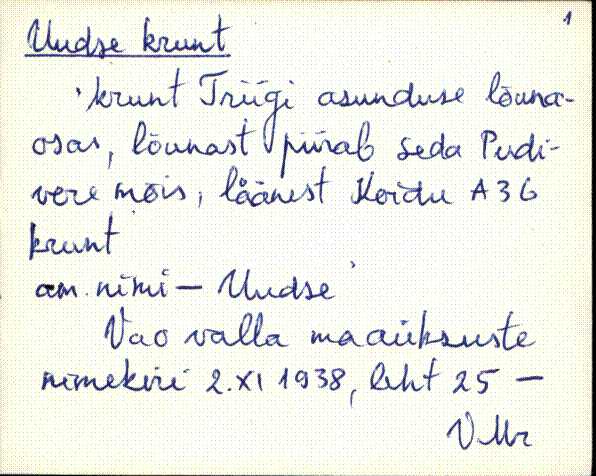 1
Uudse krunt
'krunt Triigi asunduse lõuna-
osas, lõunast piirab seda Pudi-
vere mõis, läänest Koidu A36
krunt
am. nimi – Uudse'
Vao valla maaüksuste
nimekiri 2.XI 1938, leht 25 –
V Mr